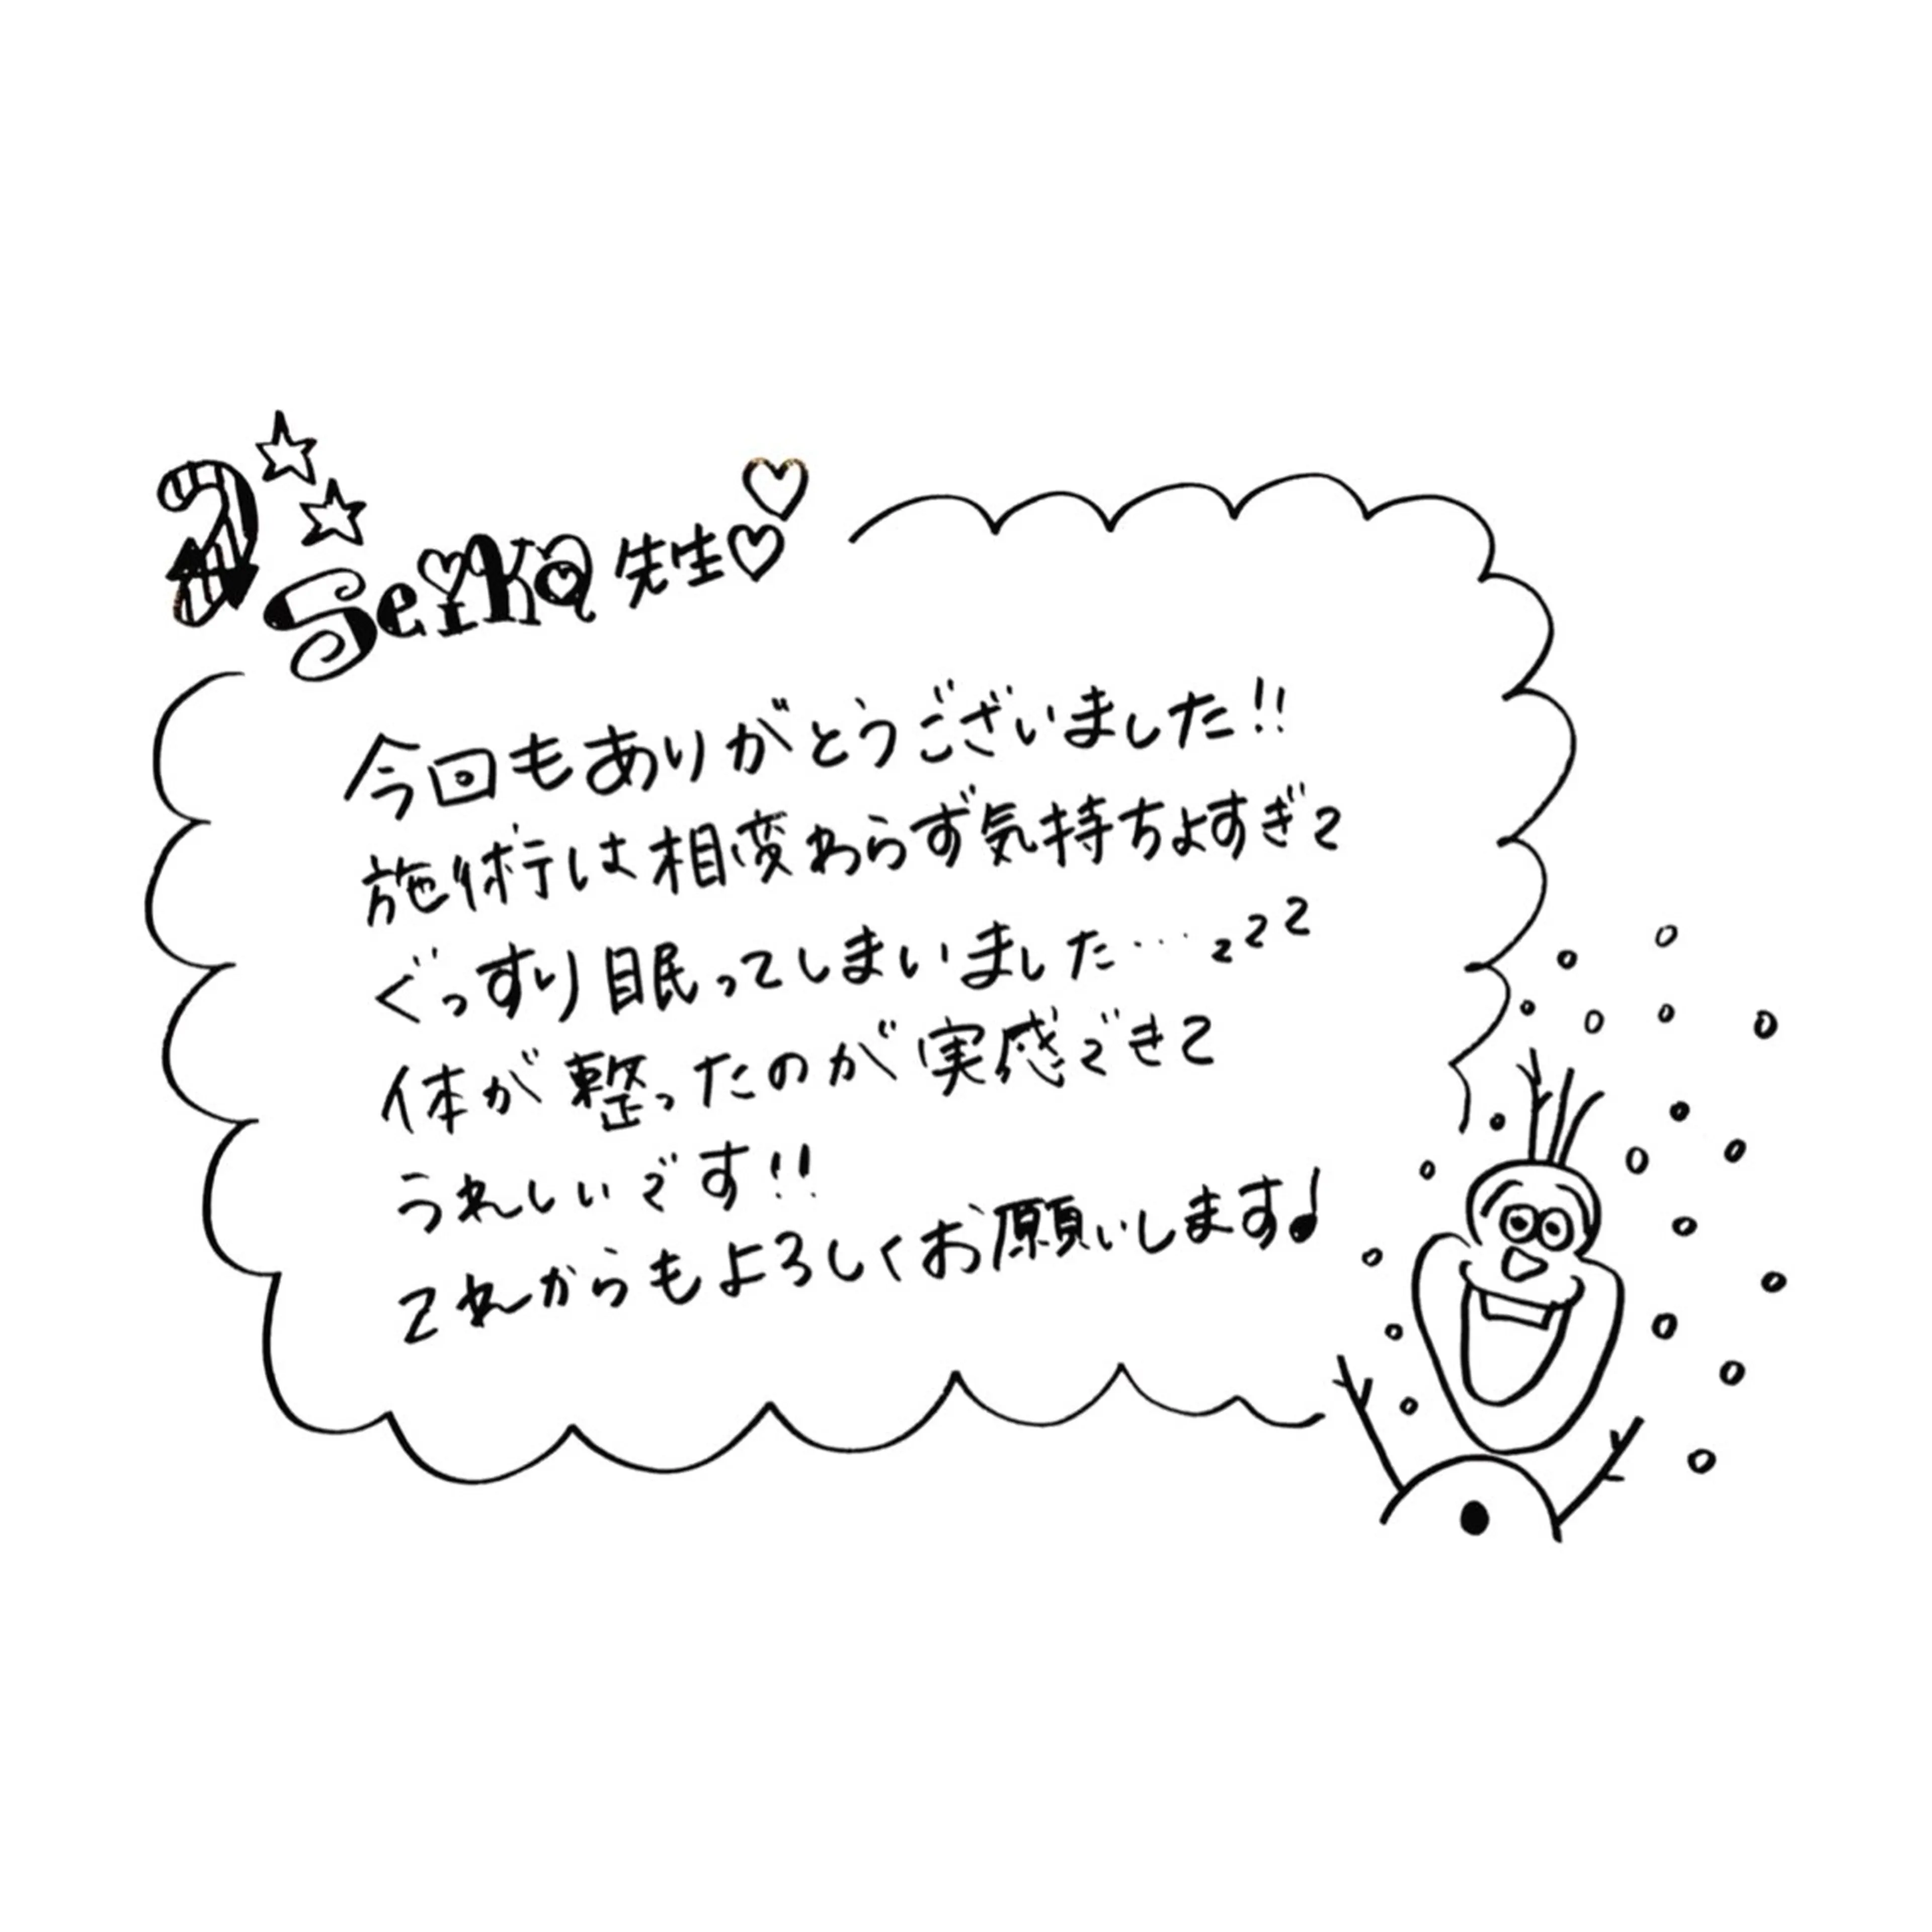 Seika 先生♡♡
今回もありがとうございました!!
施術は相変わらず気持ちよすぎて
ぐっすり眠ってしまいました…zzz
体が整ったのが実感できて
うれしいです!!
これからもよろしくお願いします♩